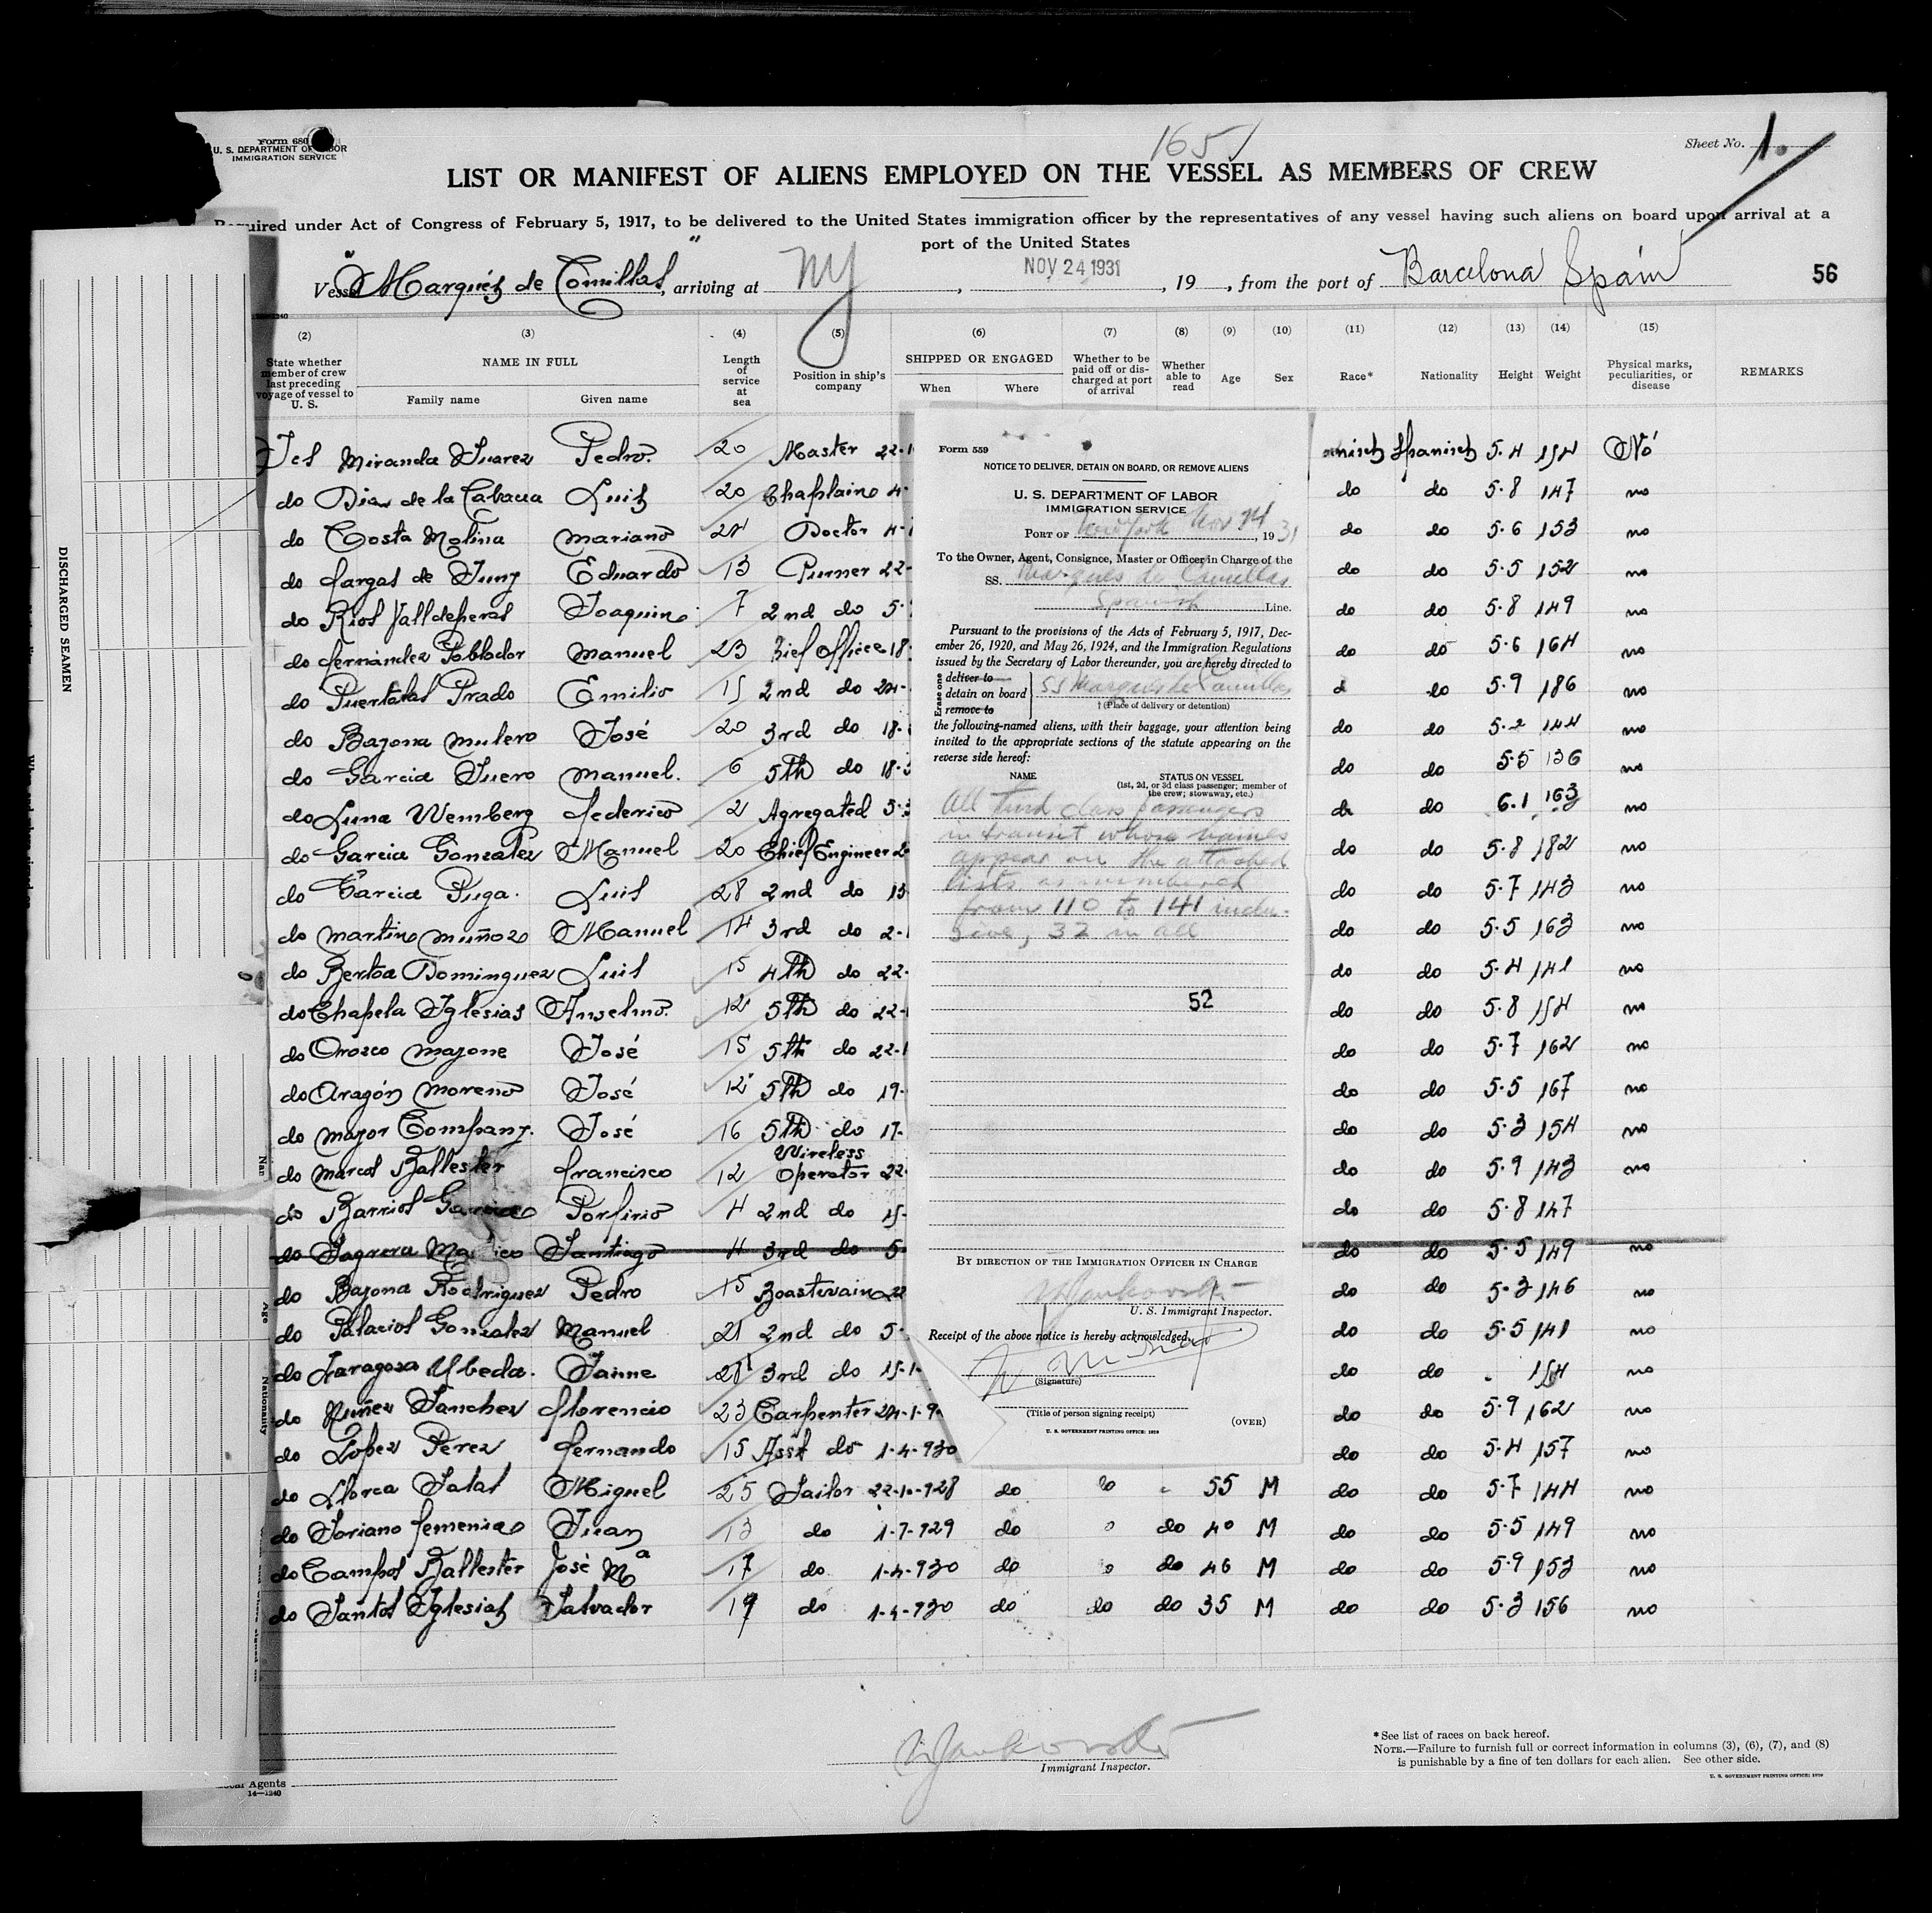 Form 680
U. S. DEPARTMENT OF LABOR
IMMIGRATION SERVICE
1651
Sheet No. 1.
LIST OR MANIFEST OF ALIENS EMPLOYED ON THE VESSEL AS MEMBERS OF CREW
Required under Act of Congress of February 5, 1917, to be delivered to the United States immigration officer by the representatives of any vessel having such aliens on board upon arrival at a
port of the United States
Vessel "Marqués de Comillas", arriving at NY, NOV 24 1931, 19 , from the port of Barcelona Spain
56
(2) (3) (4) (5) (6) (7) (8) (9) (10) (11) (12) (13) (14) (15)
State whether member of crew last preceding voyage of vessel to U. S.
NAME IN FULL
Family name Given name
Length of service at sea
Position in ship's company
SHIPPED OR ENGAGED
When Where
Whether to be paid off or discharged at port of arrival
Whether able to read
Age Sex Race* Nationality Height Weight
Physical marks, peculiarities, or disease
REMARKS
Miranda Suarez Pedro. 20 Master 22-1 Spanish 5.4 154 No
do de la Luis 20 Chaplain 4- do do 5.8 147 no
do Costa Molina Mariano 24 Doctor 4-1 do do 5.6 153 no
do Eduardo 13 Purser 22- do do 5.5 152 no
do Rios Joaquin 7 2nd do 5- do do 5.8 149 no
do Fernandez Poblador Manuel 23 Office 18- do do 5.6 164 no
do Prado Emilio 15 2nd do 24- d do 5.9 186 no
do Bazona Mulero José 20 3rd do 18- do do 5.2 144 no
do Garcia Suero Manuel. 6 5th do 18-3 do do 5.5 136 no
do Luna Wemberg Federico 2 Agregated 5-3 do do 6.1 163 no
do Garcia Gonzalez Manuel 20 Chief Engineer 2 do do 5.8 182 no
do Garcia Puga. Luis 28 2nd do 15 do do 5.7 143 no
do Martino Muñoz Manuel 14 3rd do 2-1 do do 5.5 163 no
do Bertoa Dominguez Luis 15 4th do 22- do do 5.4 141 no
do Chapela Yglesias Anselmo. 12 5th do 22-1 do do 5.8 154 no
do Orozco Mazone José 15 5th do 22-1 do do 5.7 162 no
do Aragón Moreno José 12 5th do 19- do do 5.5 167 no
do Mayor Company. José 16 5th do 17- do do 5.3 154 no
do Marcos Ballester Francisco 12 Wireless Operator 22- do do 5.9 143 no
do Barrios Garcia Porfirio 4 2nd do 15- do do 5.8 147
do Sagrera Santiago 4 3rd do 5 do do 5.5 149 no
do Bazona Rodriguez Pedro 15 Boastswain 22 do do 5.3 146 no
do Palacios Gonzalez Manuel 21 2nd do 5- do do 5.5 141 no
do Zaragoza Ubeda. Jaime 28 3rd do 15-1- do do no
do Nuñez Sanchez Florencio 23 Carpenter 24-1-9 do do 5.9 162 no
do Lopez Perez Fernando 15 Asst do 1-4-930 do do 5.4 157 no
do Llorca Salas Miguel 25 Sailor 22-10-928 do 55 M do do 5.7 144 no
do Soriano Femenias Juan 13 do 1-7-929 do do 40 M do do 5.5 149 no
do Campos Ballester José Mª 17 do 1-4-930 do do 46 M do do 5.9 153 no
do Santos Yglesias Salvador 19 do 1-4-930 do do do 35 M do do 5.3 156 no
Form 559
NOTICE TO DELIVER, DETAIN ON BOARD, OR REMOVE ALIENS
U. S. DEPARTMENT OF LABOR
IMMIGRATION SERVICE
PORT OF New York Nov 24, 1931
To the Owner, Agent, Consignee, Master or Officer in Charge of the
SS. Marques de Comillas
Spanish Line.
Pursuant to the provisions of the Acts of February 5, 1917, Dec-
ember 26, 1920, and May 26, 1924, and the Immigration Regulations
issued by the Secretary of Labor thereunder, you are hereby directed to
Erase one
deliver to
detain on board SS Marques de Comillas
remove to
† (Place of delivery or detention)
the following-named aliens, with their baggage, your attention being
invited to the appropriate sections of the statute appearing on the
reverse side hereof:
NAME STATUS ON VESSEL
(1st, 2d, or 3d class passenger; member of
the crew; stowaway, etc.)
All third class passengers
in transit whose names
appear on the attached
lists as numbered
from 110 to 141 inclu-
sive, 32 in all
52
BY DIRECTION OF THE IMMIGRATION OFFICER IN CHARGE
U. S. Immigrant Inspector.
Receipt of the above notice is hereby acknowledged.
(Signature)
(Title of person signing receipt)
(OVER)
U. S. GOVERNMENT PRINTING OFFICE: 1929
DISCHARGED SEAMEN
Age
Nationality
Immigrant Inspector.
Agents
14—1240
*See list of races on back hereof.
NOTE.—Failure to furnish full or correct information in columns (3), (6), (7), and (8)
is punishable by a fine of ten dollars for each alien. See other side.
U. S. GOVERNMENT PRINTING OFFICE: 1929